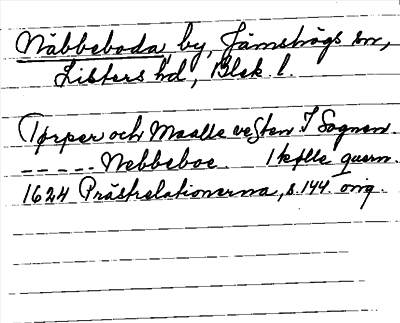 Näbbeboda by, Jämshögs sn,
Listers hd, Blek. l.
Torper och Maalle vesten I Sognen.
----- Nebbeboe. 1 kglle quern.
1624 Prästrelationerna, s. 144. orig.